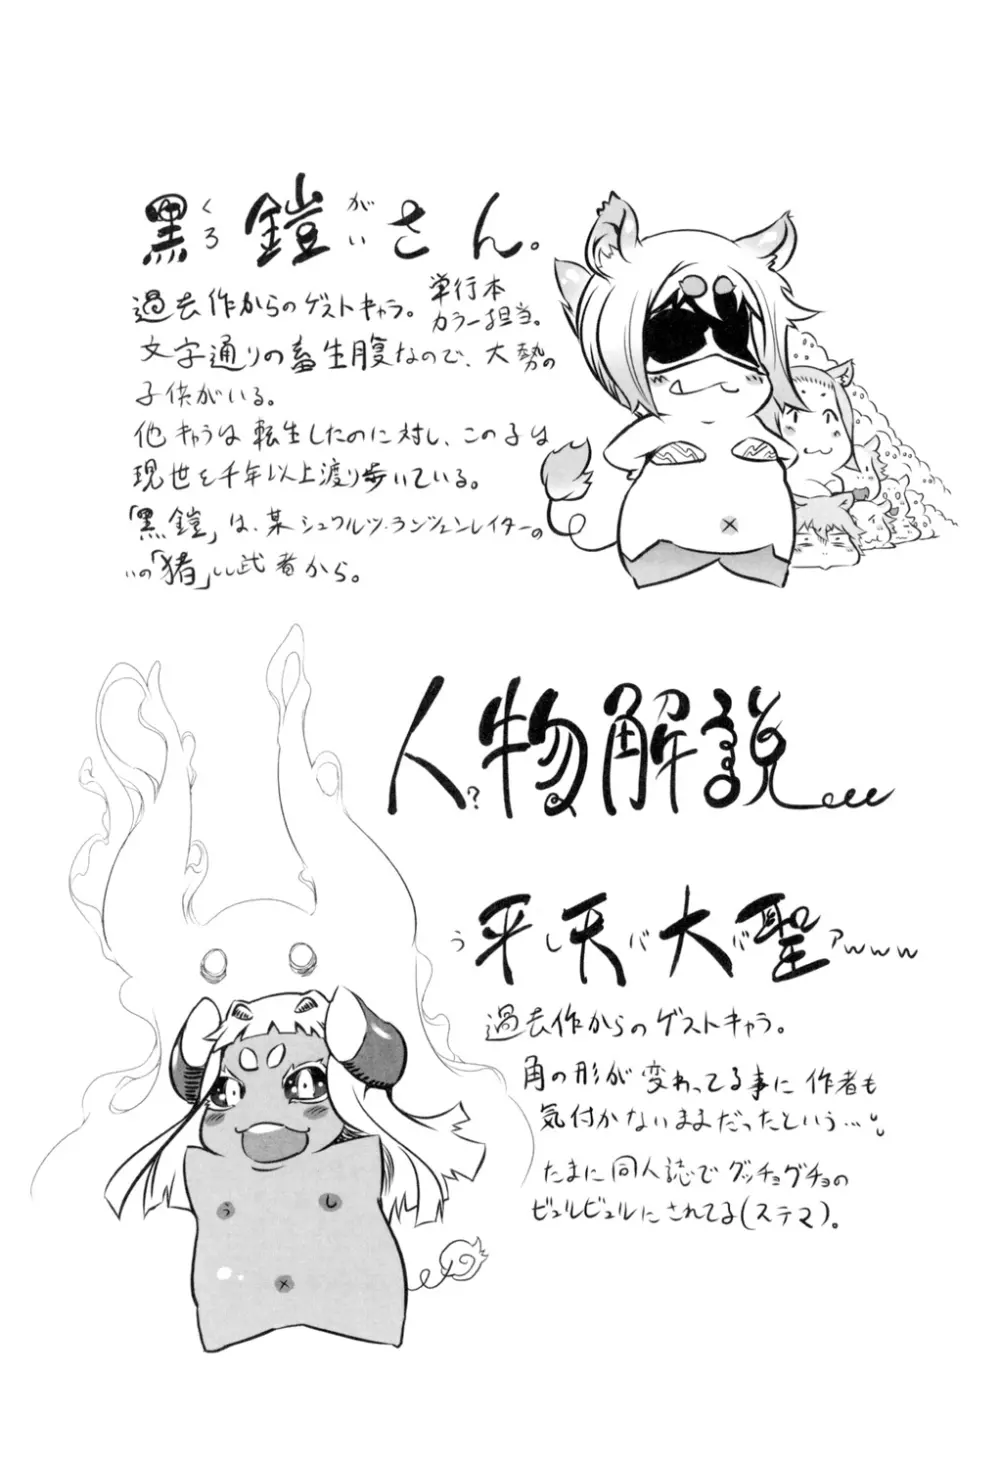 黒鎧さん。
くろ がい
過去作からのゲストキャラ。
単行本
カラー担当。
文字通りの畜生腹なので、大勢の
子供がいる。
他キャラは転生したのに対し、この子は
現世を千年以上渡り歩いている。
「黒鎧」は、某シュワルツ・ランツェンレイターの
いの「猪」い武者から。
人?物解説
平天大聖
うしババアwww
過去作からのゲストキャラ。
角の形が変わってる事に作者も
気付かないままだったという…
たまに同人誌でグッチョグチョの
ビュルビュルにされてる(ステマ)。
う
し